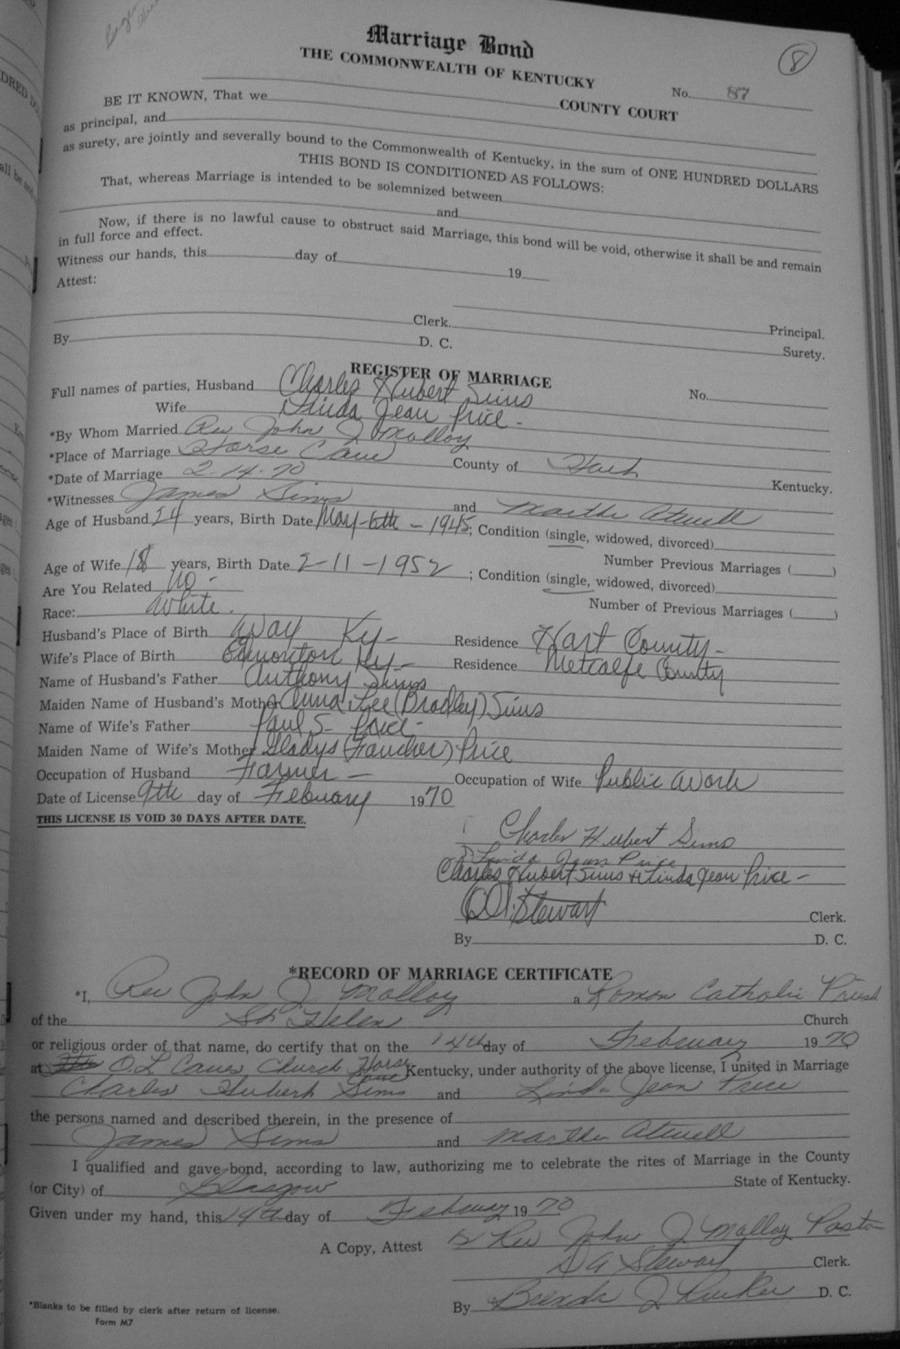 8
Marriage Bond
THE COMMONWEALTH OF KENTUCKY
No. 87
COUNTY COURT
BE IT KNOWN, That we
as principal, and
as surety, are jointly and severally bound to the Commonwealth of Kentucky, in the sum of ONE HUNDRED DOLLARS
THIS BOND IS CONDITIONED AS FOLLOWS:
That, whereas Marriage is intended to be solemnized between
and
Now, if there is no lawful cause to obstruct said Marriage, this bond will be void, otherwise it shall be and remain
in full force and effect.
Witness our hands, this day of 19
Attest:
Clerk. Principal.
By D. C. Surety.
REGISTER OF MARRIAGE
Full names of parties, Husband Charles Hubert Sims No.
Wife Linda Jean Price -
*By Whom Married Rev John J Malloy
*Place of Marriage Horse Cave County of Hart Kentucky.
*Date of Marriage 2-14-70
*Witnesses James Sims and Martha Atwell
Age of Husband 24 years, Birth Date May-6th - 1945; Condition (single, widowed, divorced)
Number Previous Marriages ( )
Age of Wife 18 years, Birth Date 2-11-1952; Condition (single, widowed, divorced)
Are You Related No -
Number of Previous Marriages ( )
Race: White.
Husband's Place of Birth Ky- Residence Hart County-
Wife's Place of Birth Edmonton Ky- Residence Metcalfe County
Name of Husband's Father Anthony Sims
Maiden Name of Husband's Mother Anna Lee (Bradley) Sims
Name of Wife's Father Paul S- Price-
Maiden Name of Wife's Mother Gladys (Faucher) Price
Occupation of Husband Farmer - Occupation of Wife Public Work
Date of License 9th day of February 1970
THIS LICENSE IS VOID 30 DAYS AFTER DATE.
Charles Hubert Sims
Linda Jean Price
Charles Hubert Sims & Linda Jean Price -
Stewart Clerk.
By D. C.
*RECORD OF MARRIAGE CERTIFICATE
*I, Rev John J Malloy a Roman Catholic Priest
of the St Helen Church
or religious order of that name, do certify that on the 14th day of February 1970
at O.L Caves Church Horse Cave Kentucky, under authority of the above license, I united in Marriage
Charles Hubert Sims and Linda Jean Price
the persons named and described therein, in the presence of
James Sims and Martha Atwell
I qualified and gave bond, according to law, authorizing me to celebrate the rites of Marriage in the County
(or City) of Glasgow State of Kentucky.
Given under my hand, this 14th day of February 1970
Rev John J Malloy Pastor
A Copy, Attest
Stewart Clerk.
By Brenda J D. C.
*Blanks to be filled by clerk after return of license.
Form M7